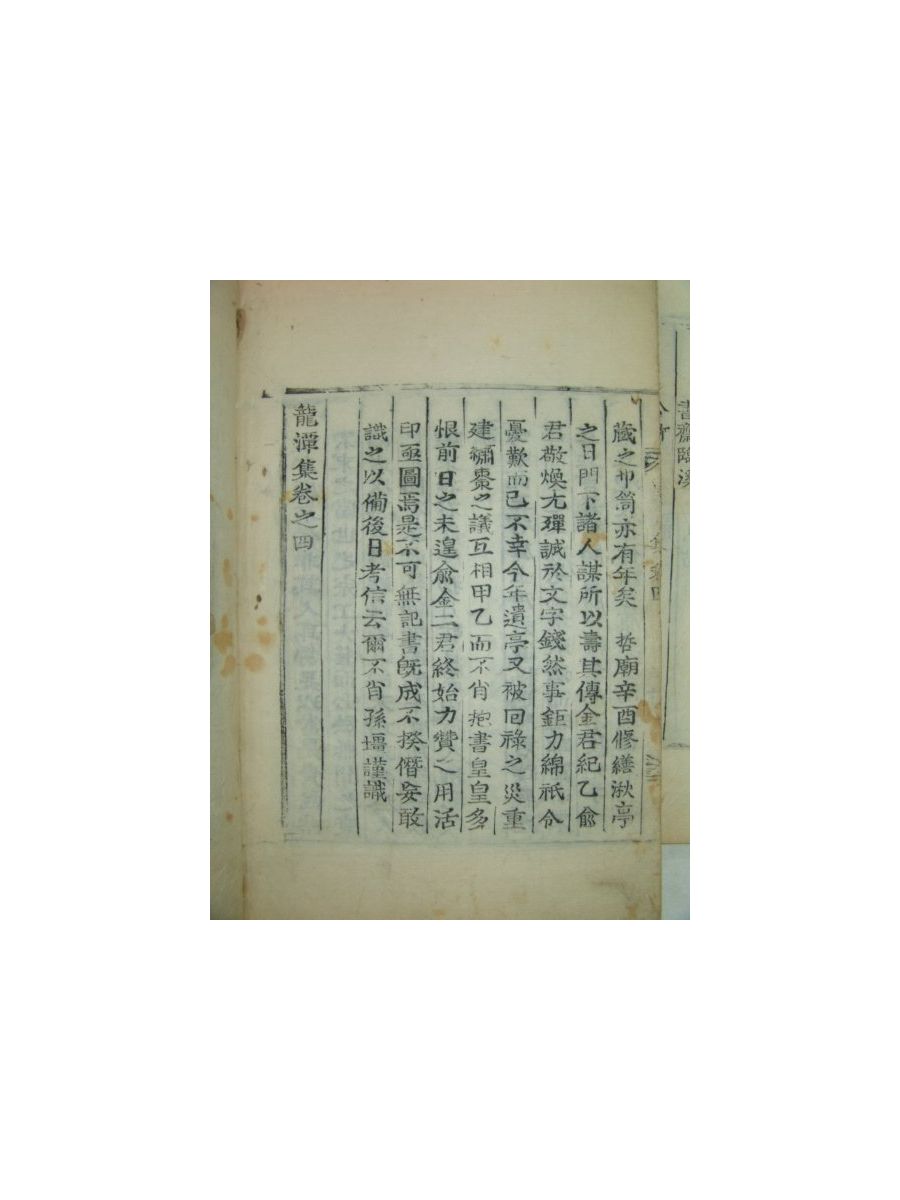 書齋臨溪
集卷四
藏之巾笥亦有年矣 哲廟辛酉修繕湫亭
之日門下諸人謀所以壽其傳金君紀乙兪
君敬煥尢殫誠於文字錢然事鉅力綿祇令
憂歎而已不幸今年遺亭又被回祿之災重
建繡棗之議互相甲乙而不肖抱書皇皇多
恨前日之未遑兪金二君終始力贊之用活
印亟圖焉是不可無記書旣成不揆僭妄敢
識之以備後日考信云爾不肖孫墡謹識
龍潭集卷之四